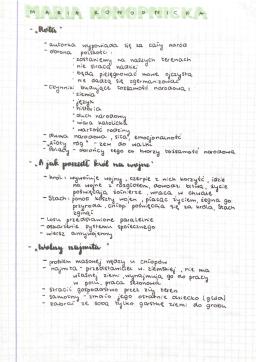 MARIA KONOPNICKA
"Rota"
- autorka wypowiada się za cały naród
- obrona polskości:
- zostaniemy na naszych terenach
- nie stracą nadziei
- będą pielęgnować mowę ojczystą
- nie dadzą się zgermanizować
- czynniki budujące tożsamość narodową:
- ziemia
- język
- historia
- duch narodowy
- wiara katolicka
- wartość rodziny
- duma narodowa, siła, emocjonalność
- "złoty róg" - zew do walki
- obrońcy tego co tworzy tożsamość narodową
"A jak poszedł król na wojnę"
- król: wojnę, czerpie z nich korzyść, idzie
na wojnę z rozgłosem, dowodzi bitwą, życie
poświęcają żołnierze, wraca w chwale
- Stach: ponosi koszty wojen, płacąc życiem, żegna go
przyroda, chłop poświęcają się za króla, Stach
zginął
- Losy przedstawione paralelnie
- oskarżenie systemu społecznego
- wiersz antywojenny
"Wolny najmita"
- problem masowej nędzy u chłopów
- najmita - przedstawiciel w. ziemskiej, nie ma
własnej ziemi, wynajmują go do pracy
w polu, praca sezonowa
- stracił gospodarstwo przez zły teren
- samotny - zmarło jego ostatnie dziecko (głód)
- zabrał ze sobą tylko garstkę ziemi do grobu